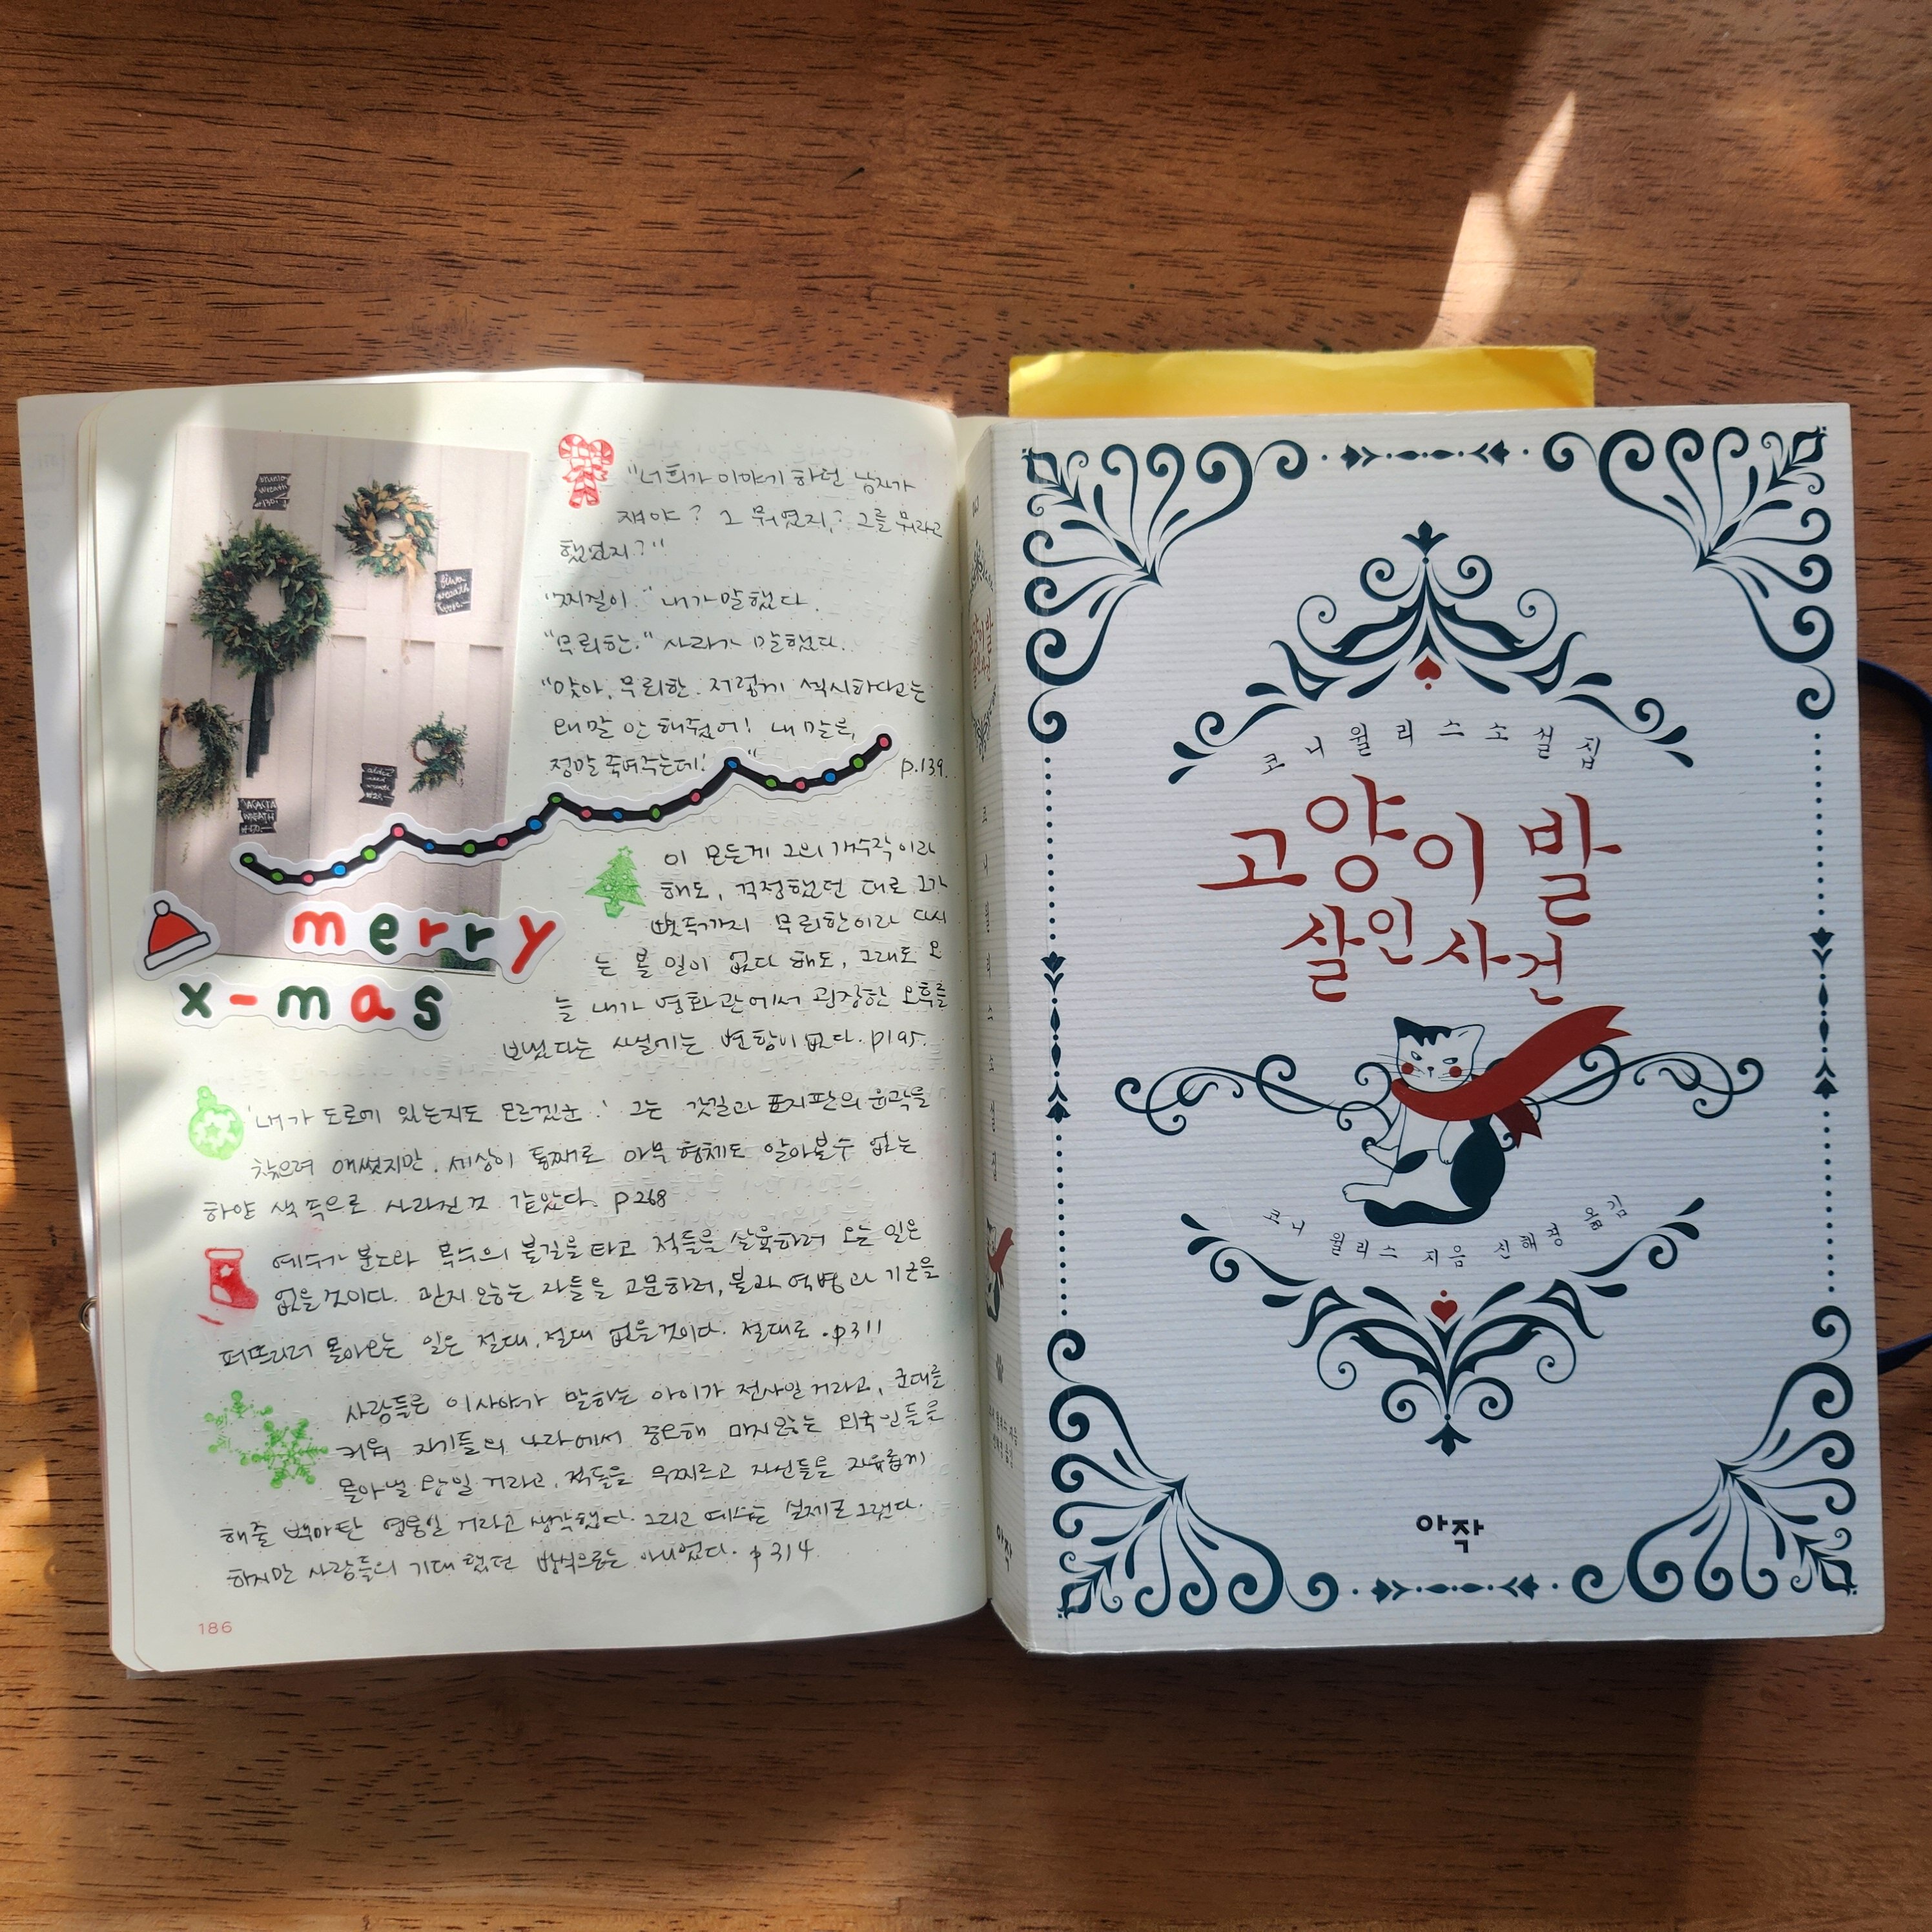 "너희가 이야기 하던 남자가
쟤야? 그 뭐였지? 그를 뭐라고
했었지?"
"찌질이." 내가 말했다.
"무뢰한." 사라가 말했다.
"맞아, 무뢰한. 저렇게 섹시하다고는
왜 말 안 해줬어! 내 말은,
정말 죽여주는데!" p.139.
이 모든게 그의 개수작이라
해도, 걱정했던 대로 그가
뼛속까지 무뢰한이라 다시
는 볼 일이 없다 해도, 그래도 오
늘 내가 영화관에서 굉장한 오후를
보냈다는 사실에는 변함이 없다. p195.
'내가 도로에 있는지도 모르겠군.' 그는 갓길과 표지판의 윤곽을
찾으려 애썼지만, 세상이 통째로 아무 형체도 알아볼수 없는
하얀 색 속으로 사라진 것 같았다. p268
예수가 분노와 복수의 불길을 타고 적들을 살육하러 오는 일은
없을 것이다. 믿지 않는 자들을 고문하러, 불과 역병과 기근을
퍼뜨리러 돌아오는 일은 절대, 절대 없을것이다. 절대로. p311
사람들은 이사야가 말하는 아이가 전사일 거라고, 군대를
키워 자기들의 나라에서 증오해 마지않는 외국인들을
몰아낼 왕일 거라고, 적들을 무찌르고 자신들을 자유롭게
해줄 백마탄 영웅일 거라고 생각했다. 그리고 예수는 실제로 그랬다.
하지만 사람들의 기대했던 방식으로는 아니었다. p314
merry
x-mas
186
코니 윌리스 소설집
고양이 발
살인 사건
코니 윌리스 지음 신해경 옮김
아작
고양이 발
아작